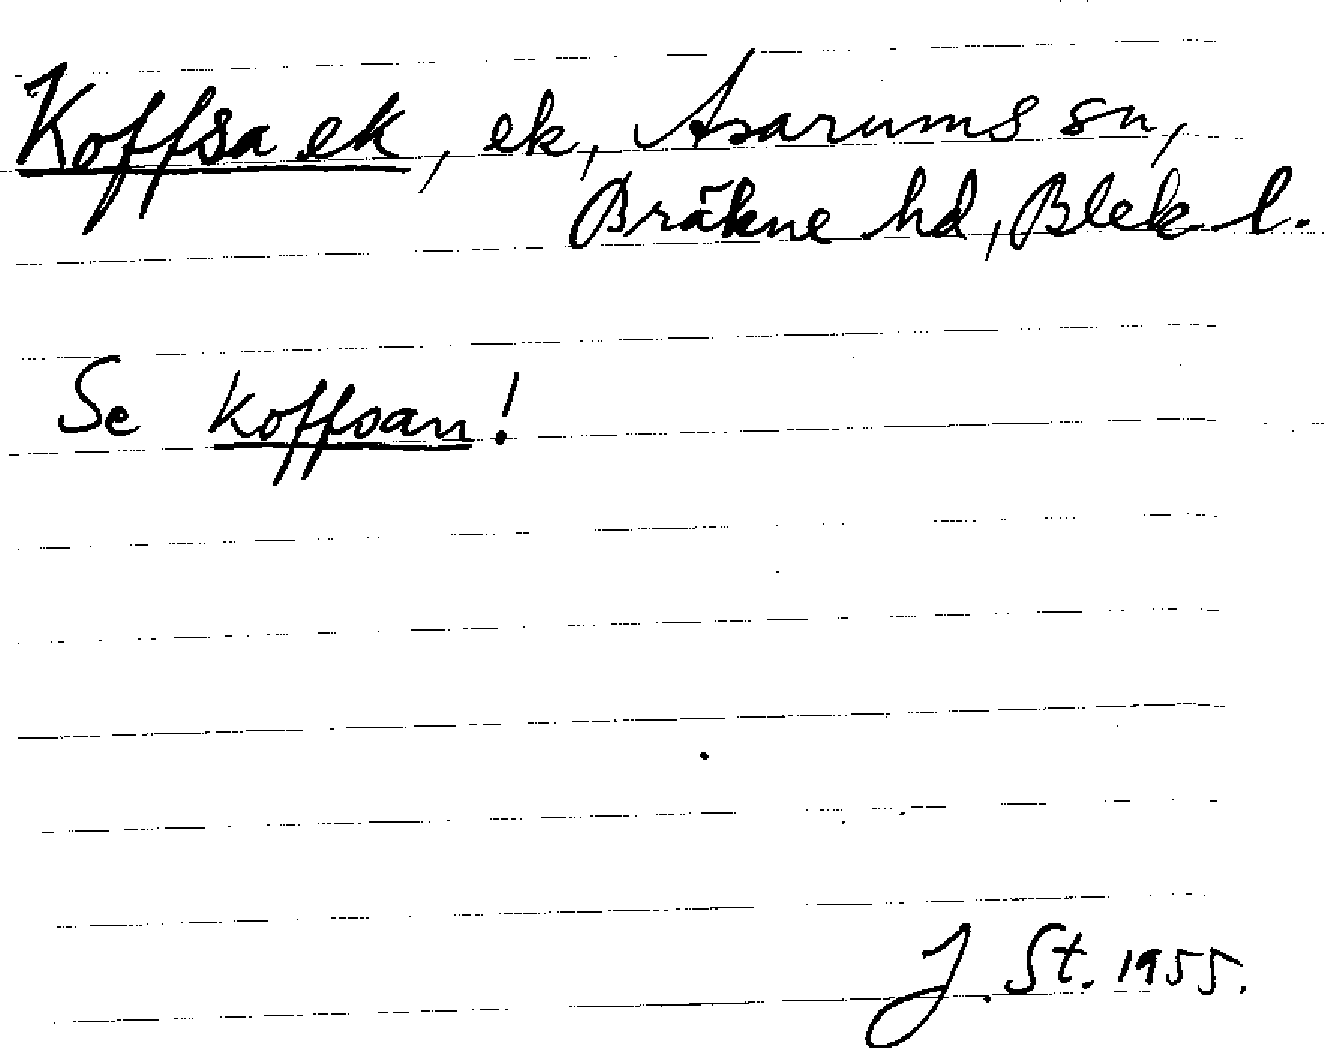 Koffsa ek, ek, Asarums sn,
Bräkne hd, Blek. l.
Se koffsan!
J. St. 1955.